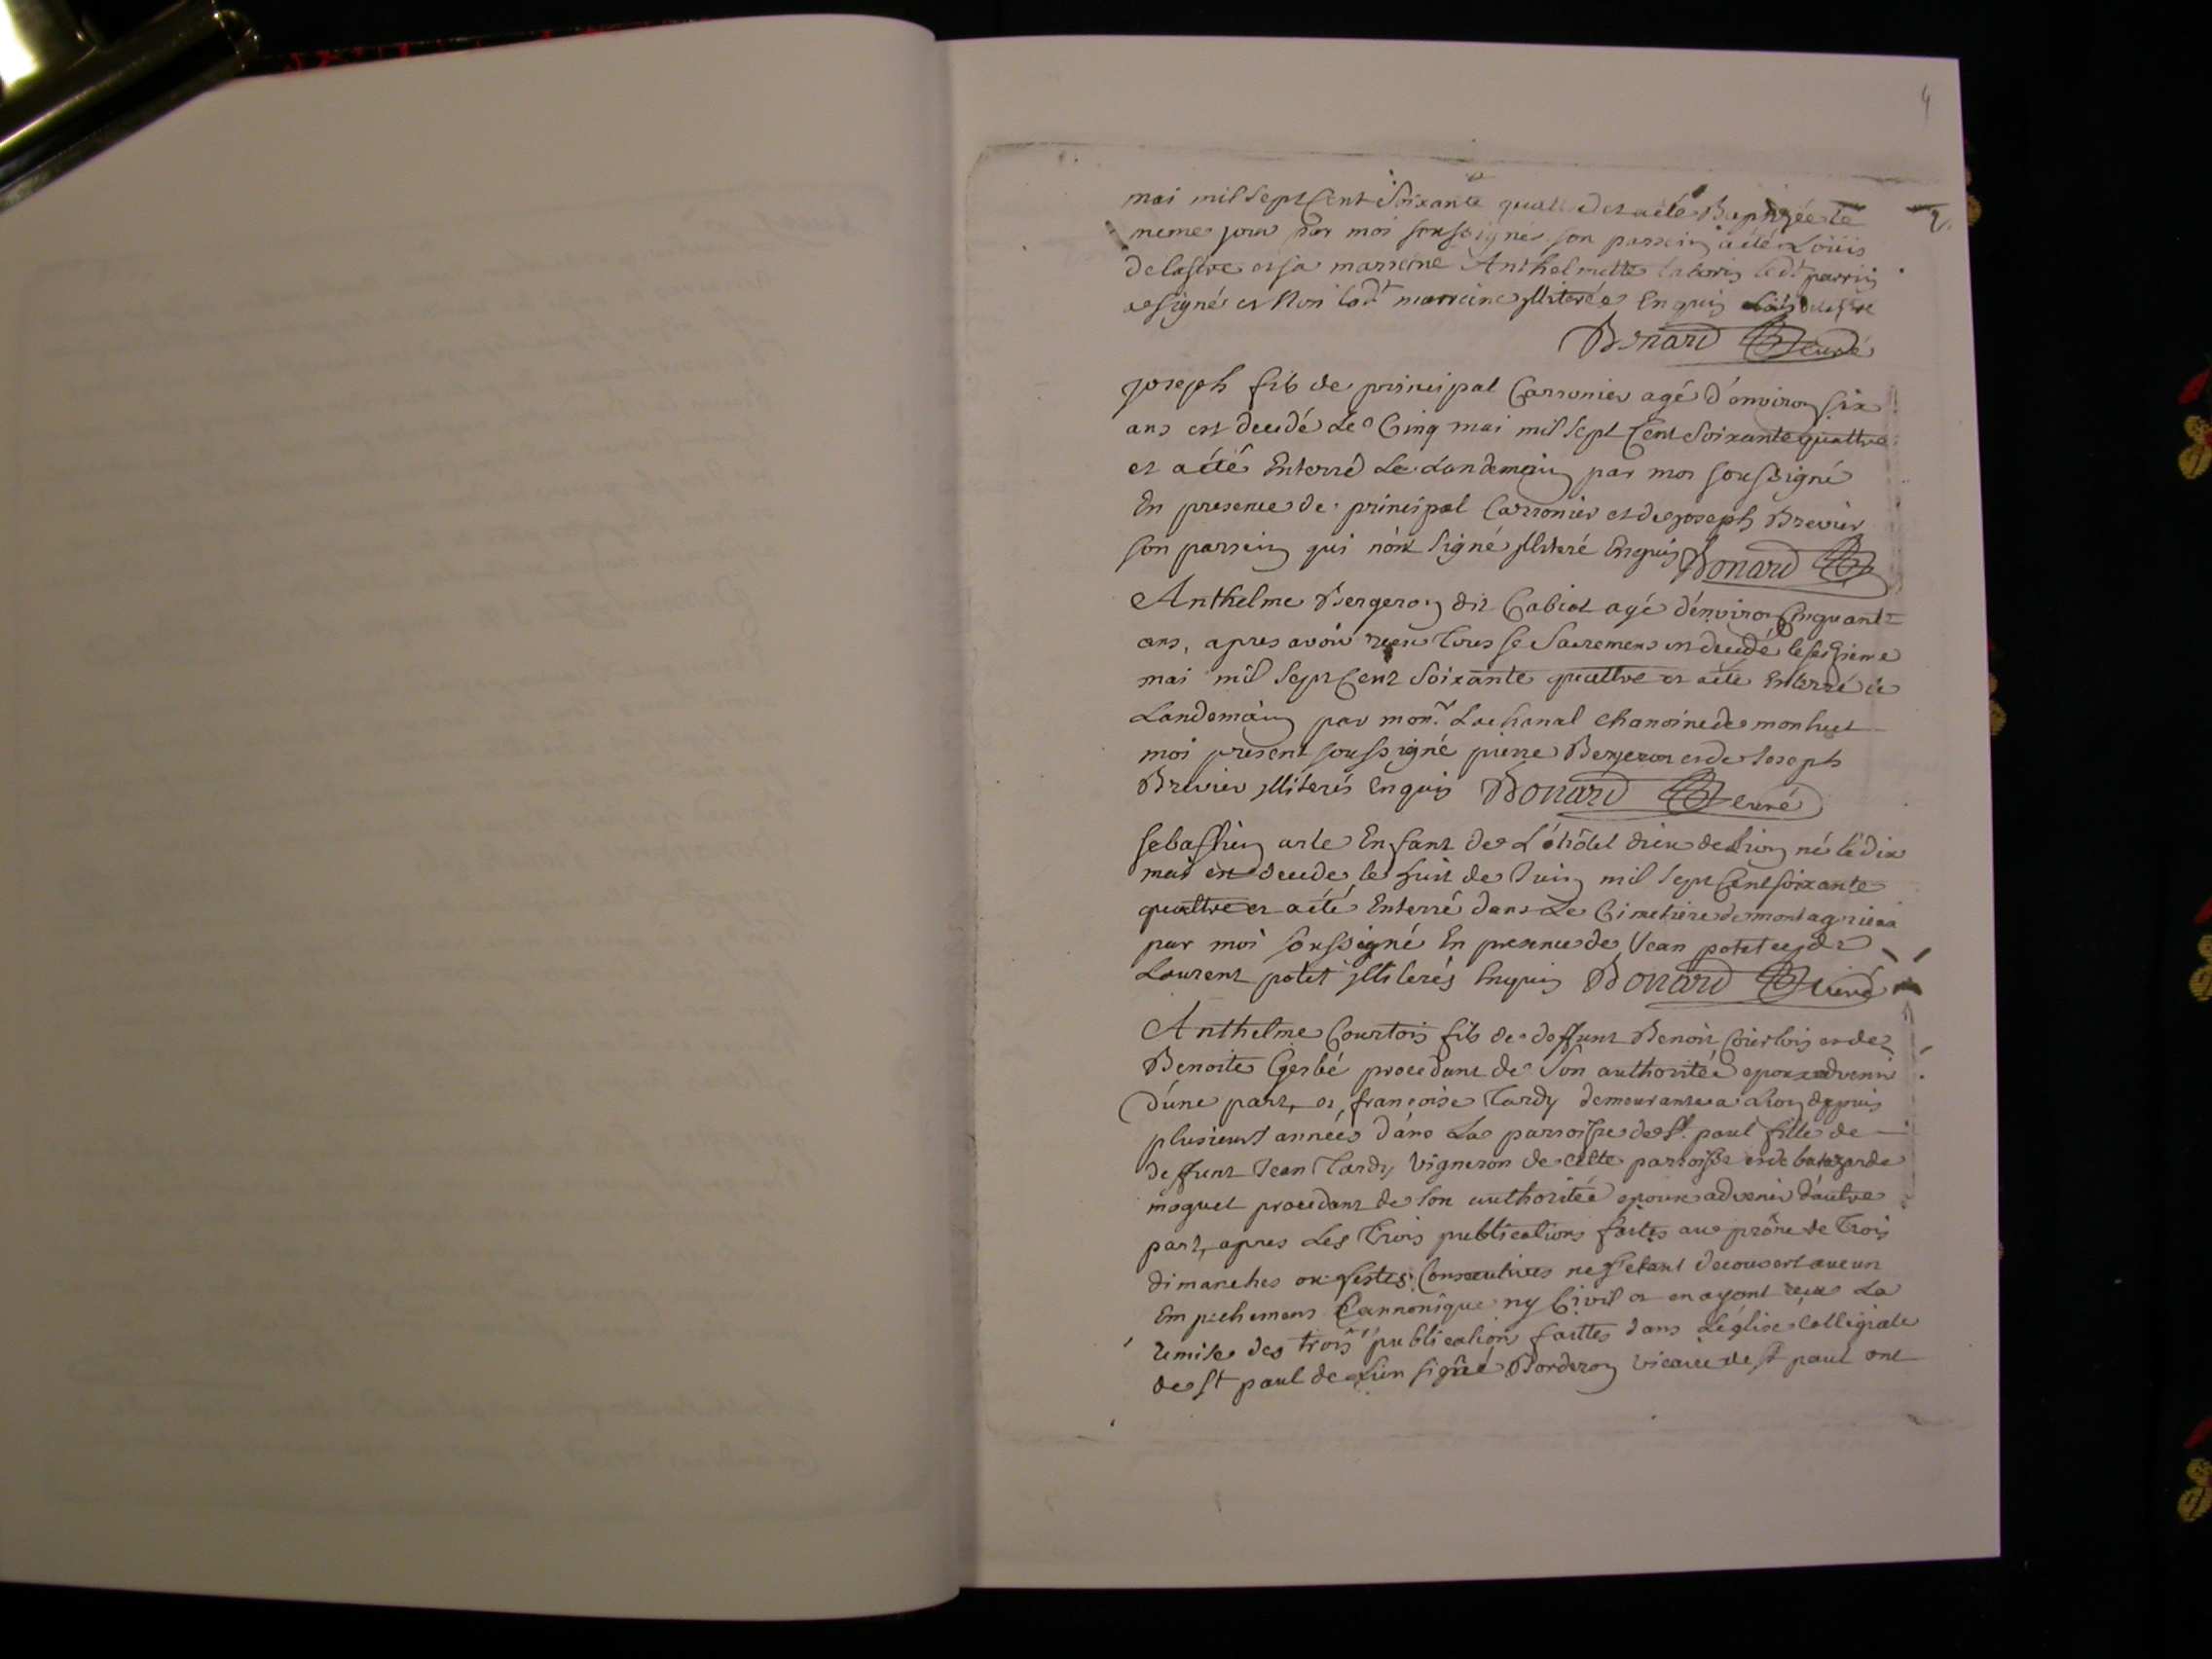 4
mai mil sept Cent Soixante quattre et a été Baptizée le
meme jour par moi soussigné son parrein a été Loüis
delastre et sa marreine Anthelmette le dt parrein
a signé et Non lad.t marreine illiterée Enquis Loüis delastre
Bonard Curé
joseph fils de principal Carronier agé d'environ six
ans est decedé Le Cinq mai mil Sept Cent Soixante quattre
et a été Enterré Le Landemain par moi soussigné
En presence de principal Carronier et de joseph Brevier
son parrein qui n'ont signé illiteré Enquis Bonard
Anthelme Bergeron dit Cabiot agé d'environ Cinquante
ans, apres avoir recu tous se Sacremens est decedé le seizieme
mai mil Sept Cent Soixante quattre et a été Enterré le
Landemain par mon.r Lachanal chanoine de monluel
moi present soussigné pierre Bergeron et de Joseph
Brevier illiterés Enquis Bonard Curé
sebastien arle Enfant de L'óhôtel dieu de Lion né le dix
mai est decede le huit de Juin mil Sept Cent soixante
quattre et a été Enterré dans Le Cimetiere de montagnieu
par moi soussigné En presence de Jean potet et de
Laurent potet illiterés Enquis Bonard Curé
Anthelme Courtois fils de deffunt Benoit Courtois et de
Benoite Gerbé procedant de Son authoritée epoux advenir
d'une part, et françoise Tardy demeurante a Lion depuis
plusieurs années dans La parroisse de St. paul fille de
deffunt Jean Tardy Vigneron de cette parroisse et de
moguet procedant de son authoritée epouse advenir d'autre
part, apres Les Trois publications faites au prône de Trois
dimanches ou festes Consecutives ne s'etant decouvert aucun
Empechement Cannonique ny Civil et en ayant recu La
remise des trois publication faittes dans L'église Collegiale
de St paul de Lion signé Borderon Vicaire de St paul ont